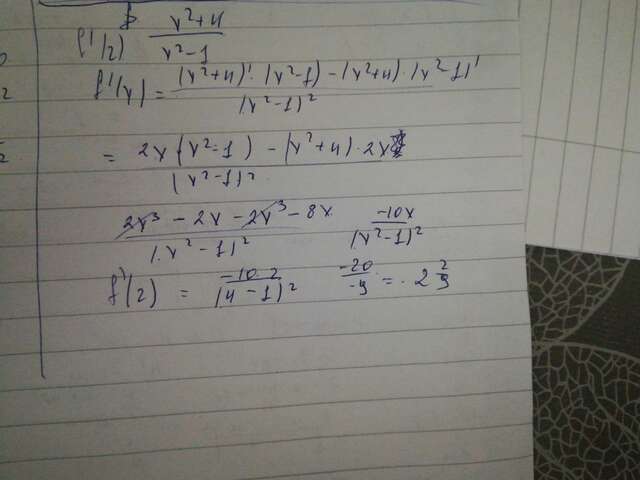 f'(2) x²+4/x²-1
f'(x) = (x²+4)'·(x²-1)-(x²+4)·(x²-1)'/(x²-1)²
= 2x(x²-1)-(x²+4)·2x/(x²-1)²
2x³-2x-2x³-8x/(x²-1)² -10x/(x²-1)²
f'(2) = -10·2/(4-1)² -20/-9 = -2 2/9